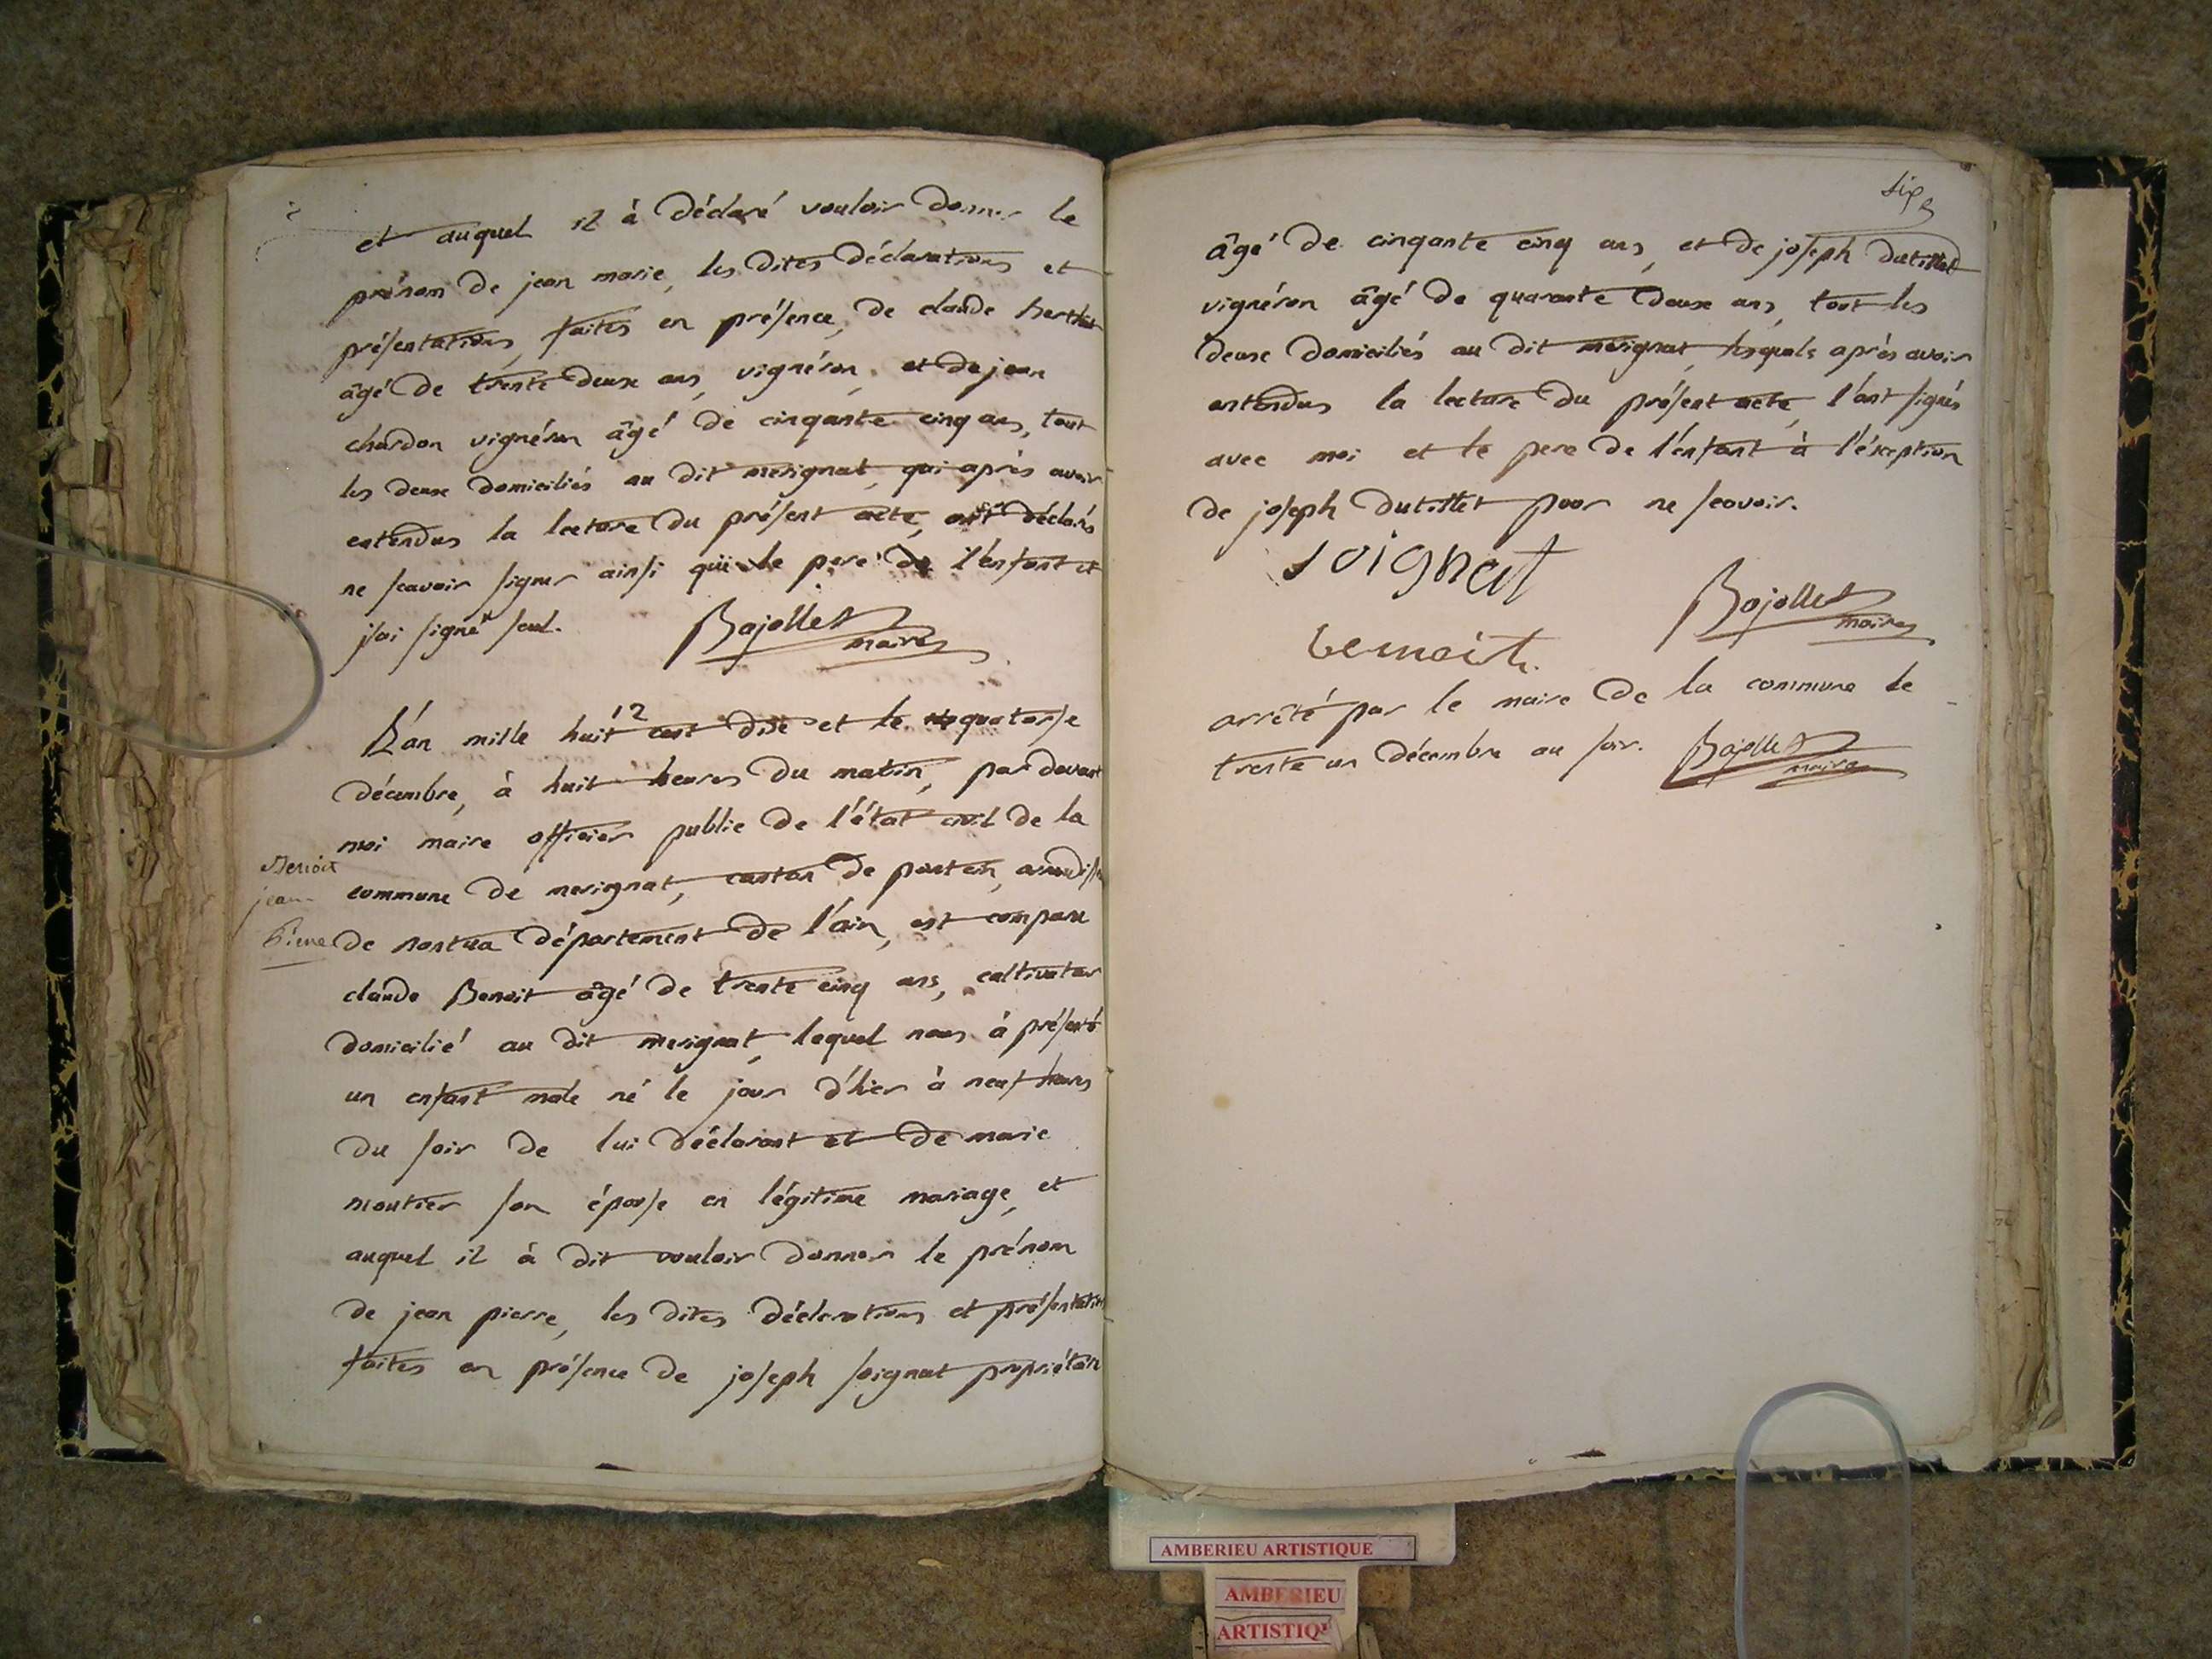 et auquel il à déclaré vouloir donner le
prénom de jean marie, les dites déclarations et
présentations, faites en présence, de claude
âgé de trente deux ans, vignéron, et de jean
chardon vignéron âgé de cinqante cinq ans, tout
les deux domiciliés au dit merignat, qui après avoir
entendus la lecture du présent acte, ont déclarés
ne scavoir signer ainsi que le pere de l'enfant et
j'ai signé seul. Bajollet
maire
12
L'an mille huit cent dix et le quatorse
décembre, à huit heures du matin, par devant
moi maire officier public de l'état civil de la
Benoit
jean
Pierre
commune de merignat, canton de poncin,
de nantua département de l'ain, est comparu
claude Benoit âgé de trente cinq ans, cultivateur
domicilié au dit merignat, lequel nous à présenté
un enfant male né le jour d'hier à neuf heures
du soir de lui déclarant et de marie
moutier son épouse en légitime mariage, et
auquel il à dit vouloir donner le prénom
de jean pierre, les dites déclarations et présentations
faites en présence de joseph soignat propriétaire
six
âgé de cinqante cinq ans, et de joseph dutillet
vignéron âgé de quarante deux ans, tout les
deux domiciliés au dit merignat, lesquels après avoir
entendus la lecture du présent acte, l'ont signés
avec moi et le pere de l'enfant à l'éxception
de joseph dutillet pour ne scavoir.
soignat
Bajollet
maire
benoit
arrêté par le maire de la commune le
trente un décembre au soir. Bajollet
maire
AMBERIEU ARTISTIQUE
AMBERIEU
ARTISTIQ